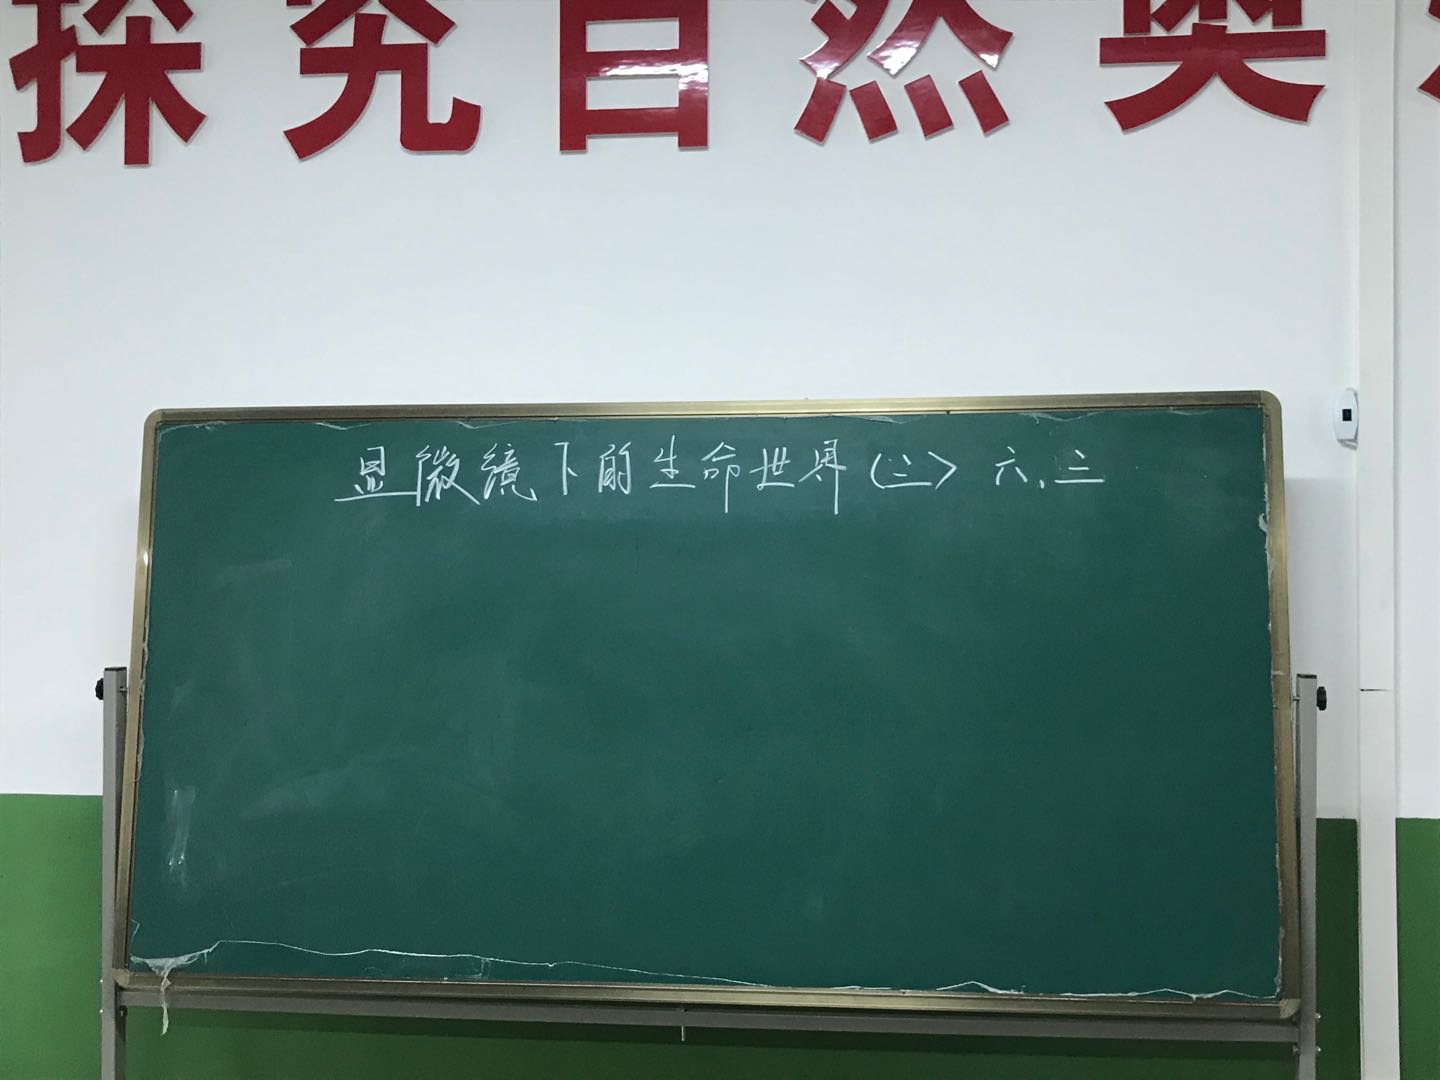 探究自然奥
显微镜下的生命世界(二)六.三